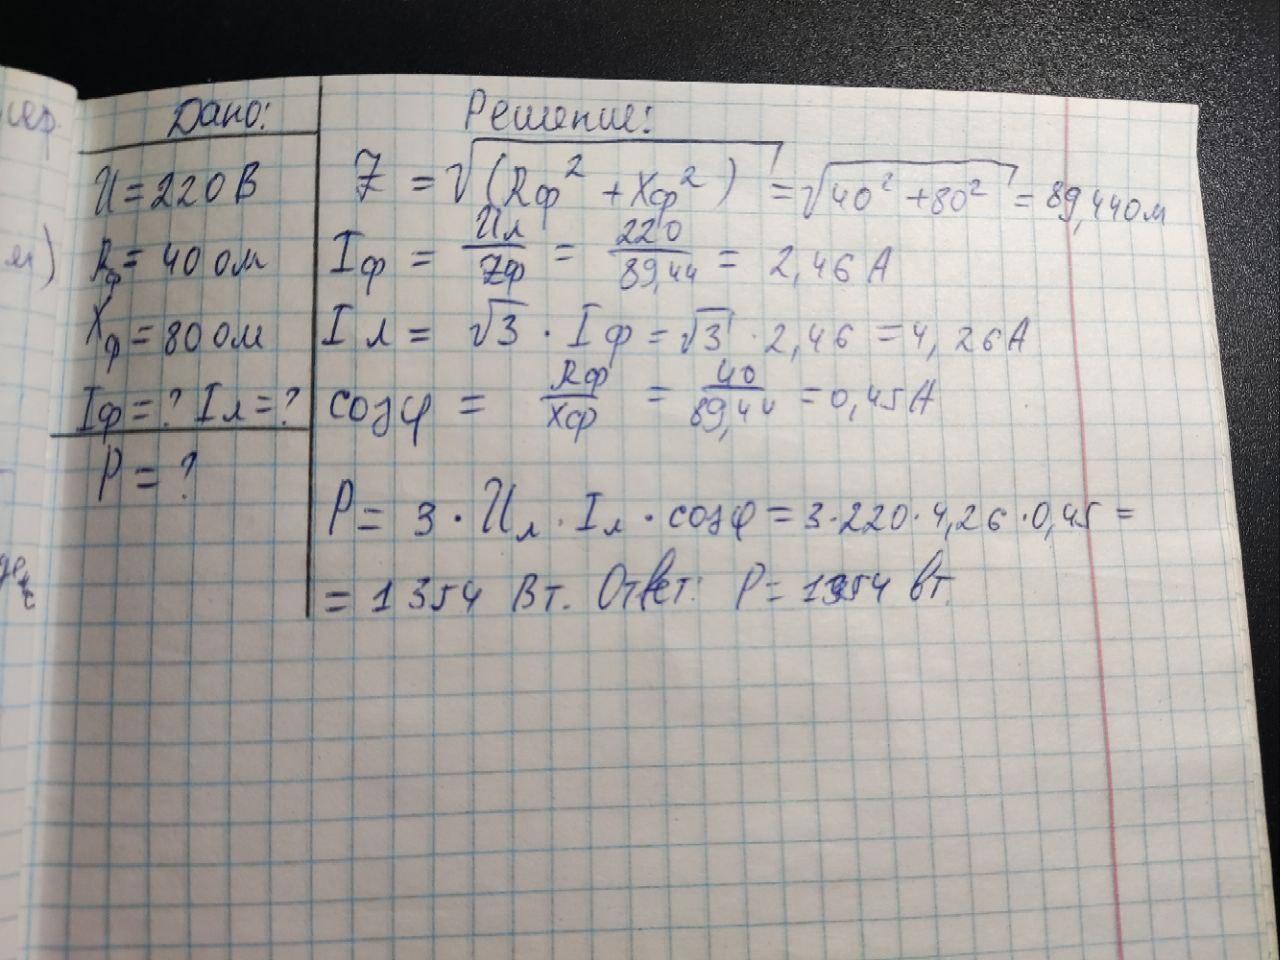 Дано:
U = 220 В
Rф = 40 ом
Xф = 80 ом
Iф = ? Iл = ?
P = ?
Решение:
Z = √(Rф² + Xф²) = √40² + 80² = 89,44 Ом
Iф = Uл/Zф = 220/89,44 = 2,46 А
Iл = √3 · Iф = √3 · 2,46 = 4,26 А
cosφ = Rф/Xф = 40/89,44 = 0,45 А
P = 3 · Uл · Iл · cosφ = 3·220·4,26·0,45 =
= 1354 Вт. Ответ: P = 1354 Вт.